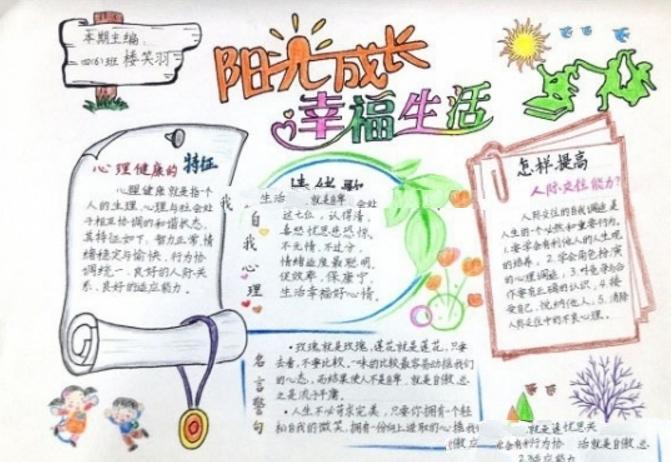 本期主编:
四(6)班 楼笑羽
阳光成长
幸福生活
心理健康的特征
心理健康就是指个
人的生理、心理与社会处
于相互协调的和谐状态,
其特征如下:智力正常,情
绪稳定与愉快,行为协
调统一、良好的人际关
系、良好的适应能力。
自我心理
生活 就是自卑 会处
这七位,认得清,
喜怒忧思悲恐惊,
不无情,不过分,
情绪适度最聪明,
促效率,保康宁,
生活幸福好心情。
怎样提高
人际交往能力?
人际交往的自我调适是
人生的一个必然和重要行为。
1、要学会有利他人的人生观
的培养,2、学会角色扮演
的心理调适,3、对竞争与合
作要有正确的认识,4、接
受自己,悦纳他人;5、消除
人际交往中的不良心理。
名言警句
·玫瑰就是玫瑰,莲花就是莲花,只要
去看,不要比较。一味的比较最容易动摇我们
的心态,而结果使人不是自卑,就是自傲,总
之是流于平庸。
·人生不必苛求完美,只要你拥有一个轻
松自我的微笑,拥有一份向上进取的心
就是 忧思关
会有利行为协 活就是自卑
2.3适应能力